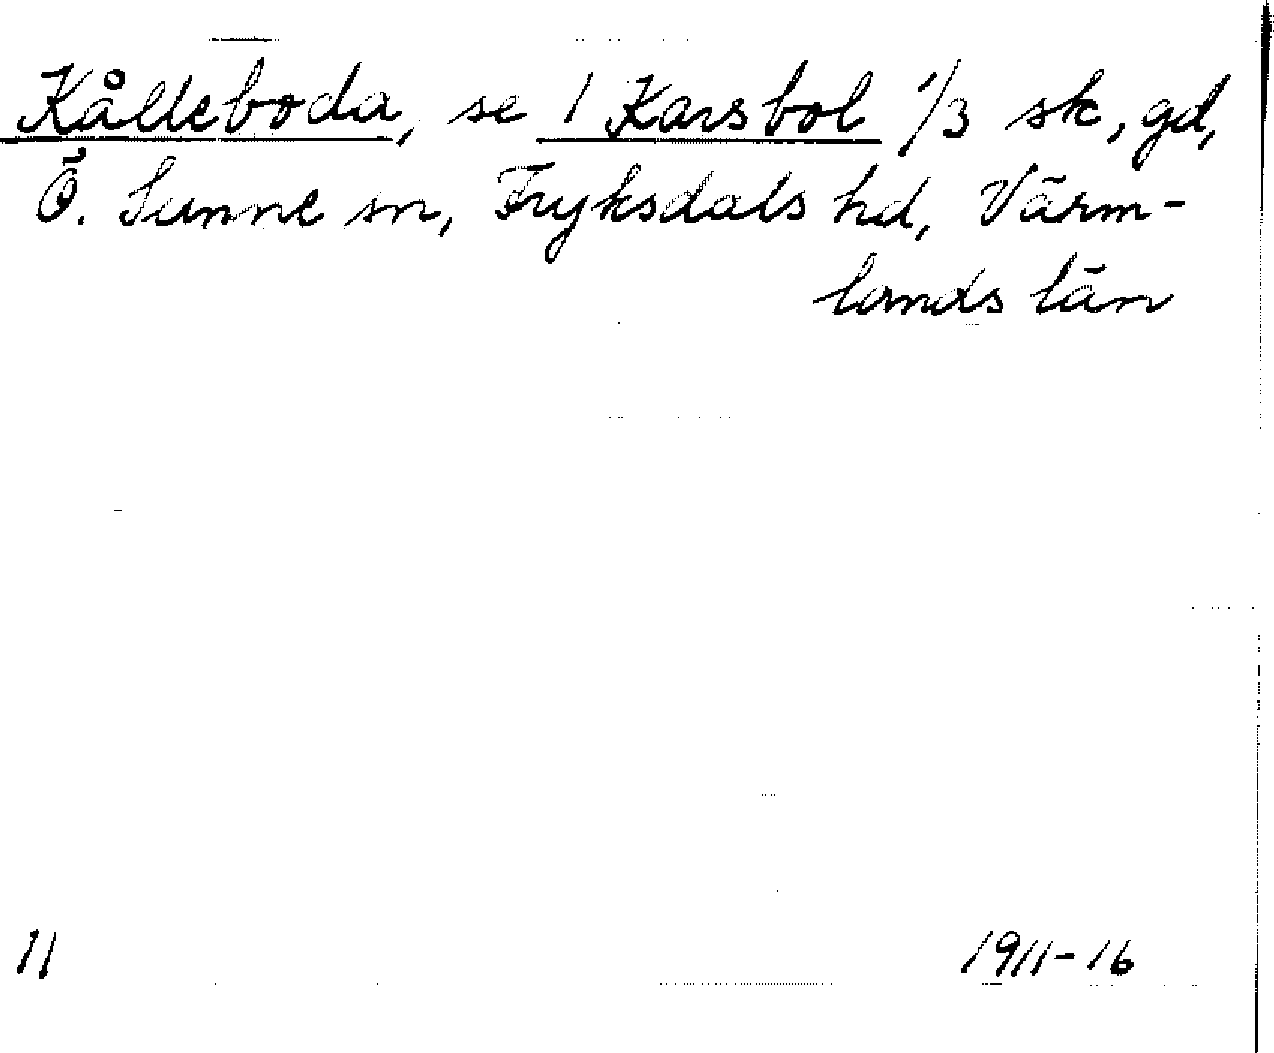 Kålleboda, se 1 Karsbol 1/3 sk, gd,
Ö. Sunne sn, Fryksdals hd, Värm-
lands län
11 1911-16